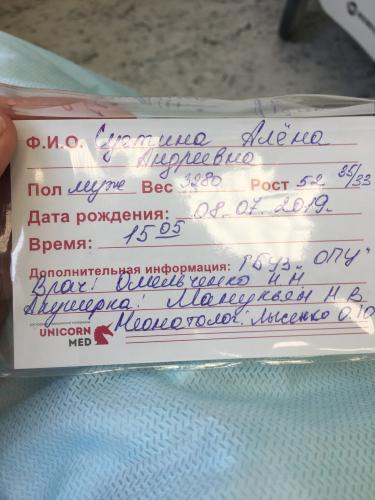 Ф.И.О. Суетина Алёна
Андреевна
Пол муж Вес 3280 Рост 52 35/33
Дата рождения: 08.07.2019г.
Время: 15 05
Дополнительная информация: ГБУЗ "ОПЦ"
Врач: Омельченко Н.Н.
Акушерка: Манукьян Н.В
UNICORN Неонатолог: Лысенко О.Ю
MED